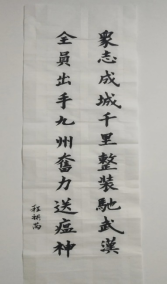 眾志成城千里整装馳武漢
全員出手九州奮力送瘟神